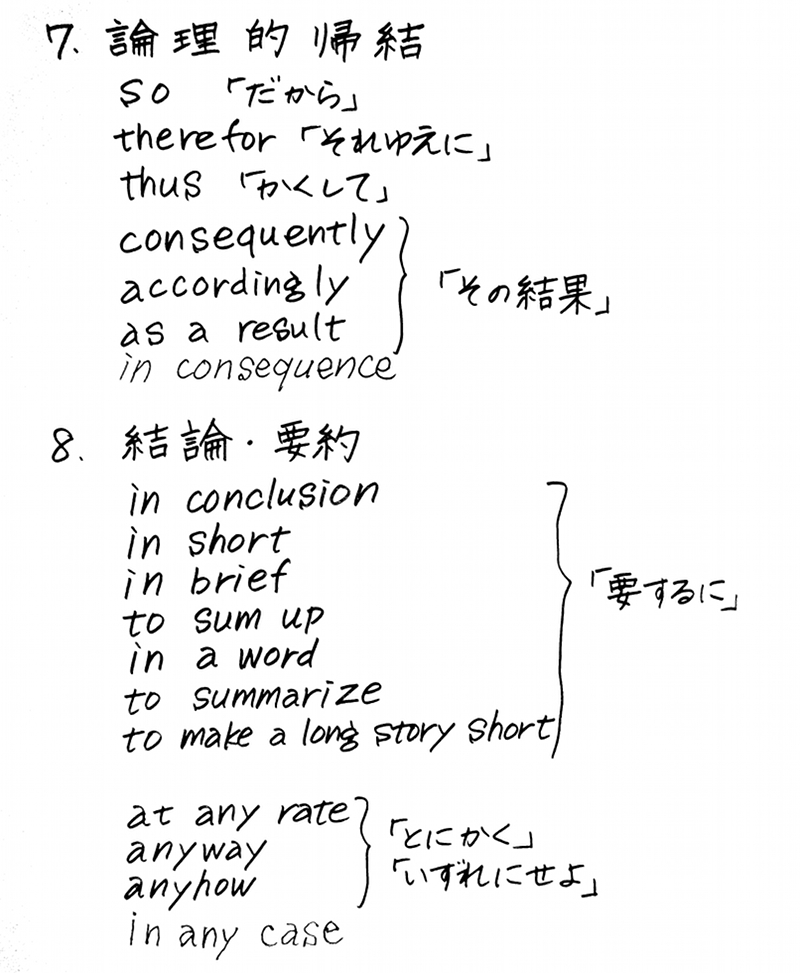 7. 論理的帰結
so 「だから」
therefor 「それゆえに」
thus 「かくして」
consequently
accordingly 「その結果」
as a result
in consequence
8. 結論・要約
in conclusion
in short
in brief 「要するに」
to sum up
in a word
to summarize
to make a long story short
at any rate 「とにかく」
anyway
anyhow 「いずれにせよ」
in any case